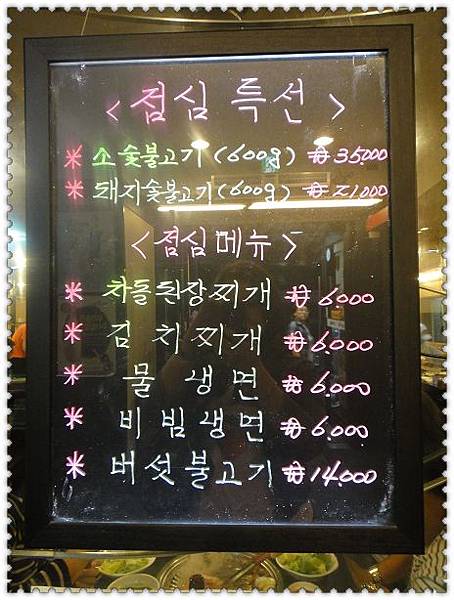 <점심 특선>
* 소숯불고기(600g) ₩35,000
* 돼지숯불고기(600g) ₩21,000
<점심메뉴>
* 차돌된장찌개 ₩6,000
* 김치찌개 ₩6,000
* 물냉면 ₩6,000
* 비빔냉면 ₩6,000
* 버섯불고기 ₩14,000